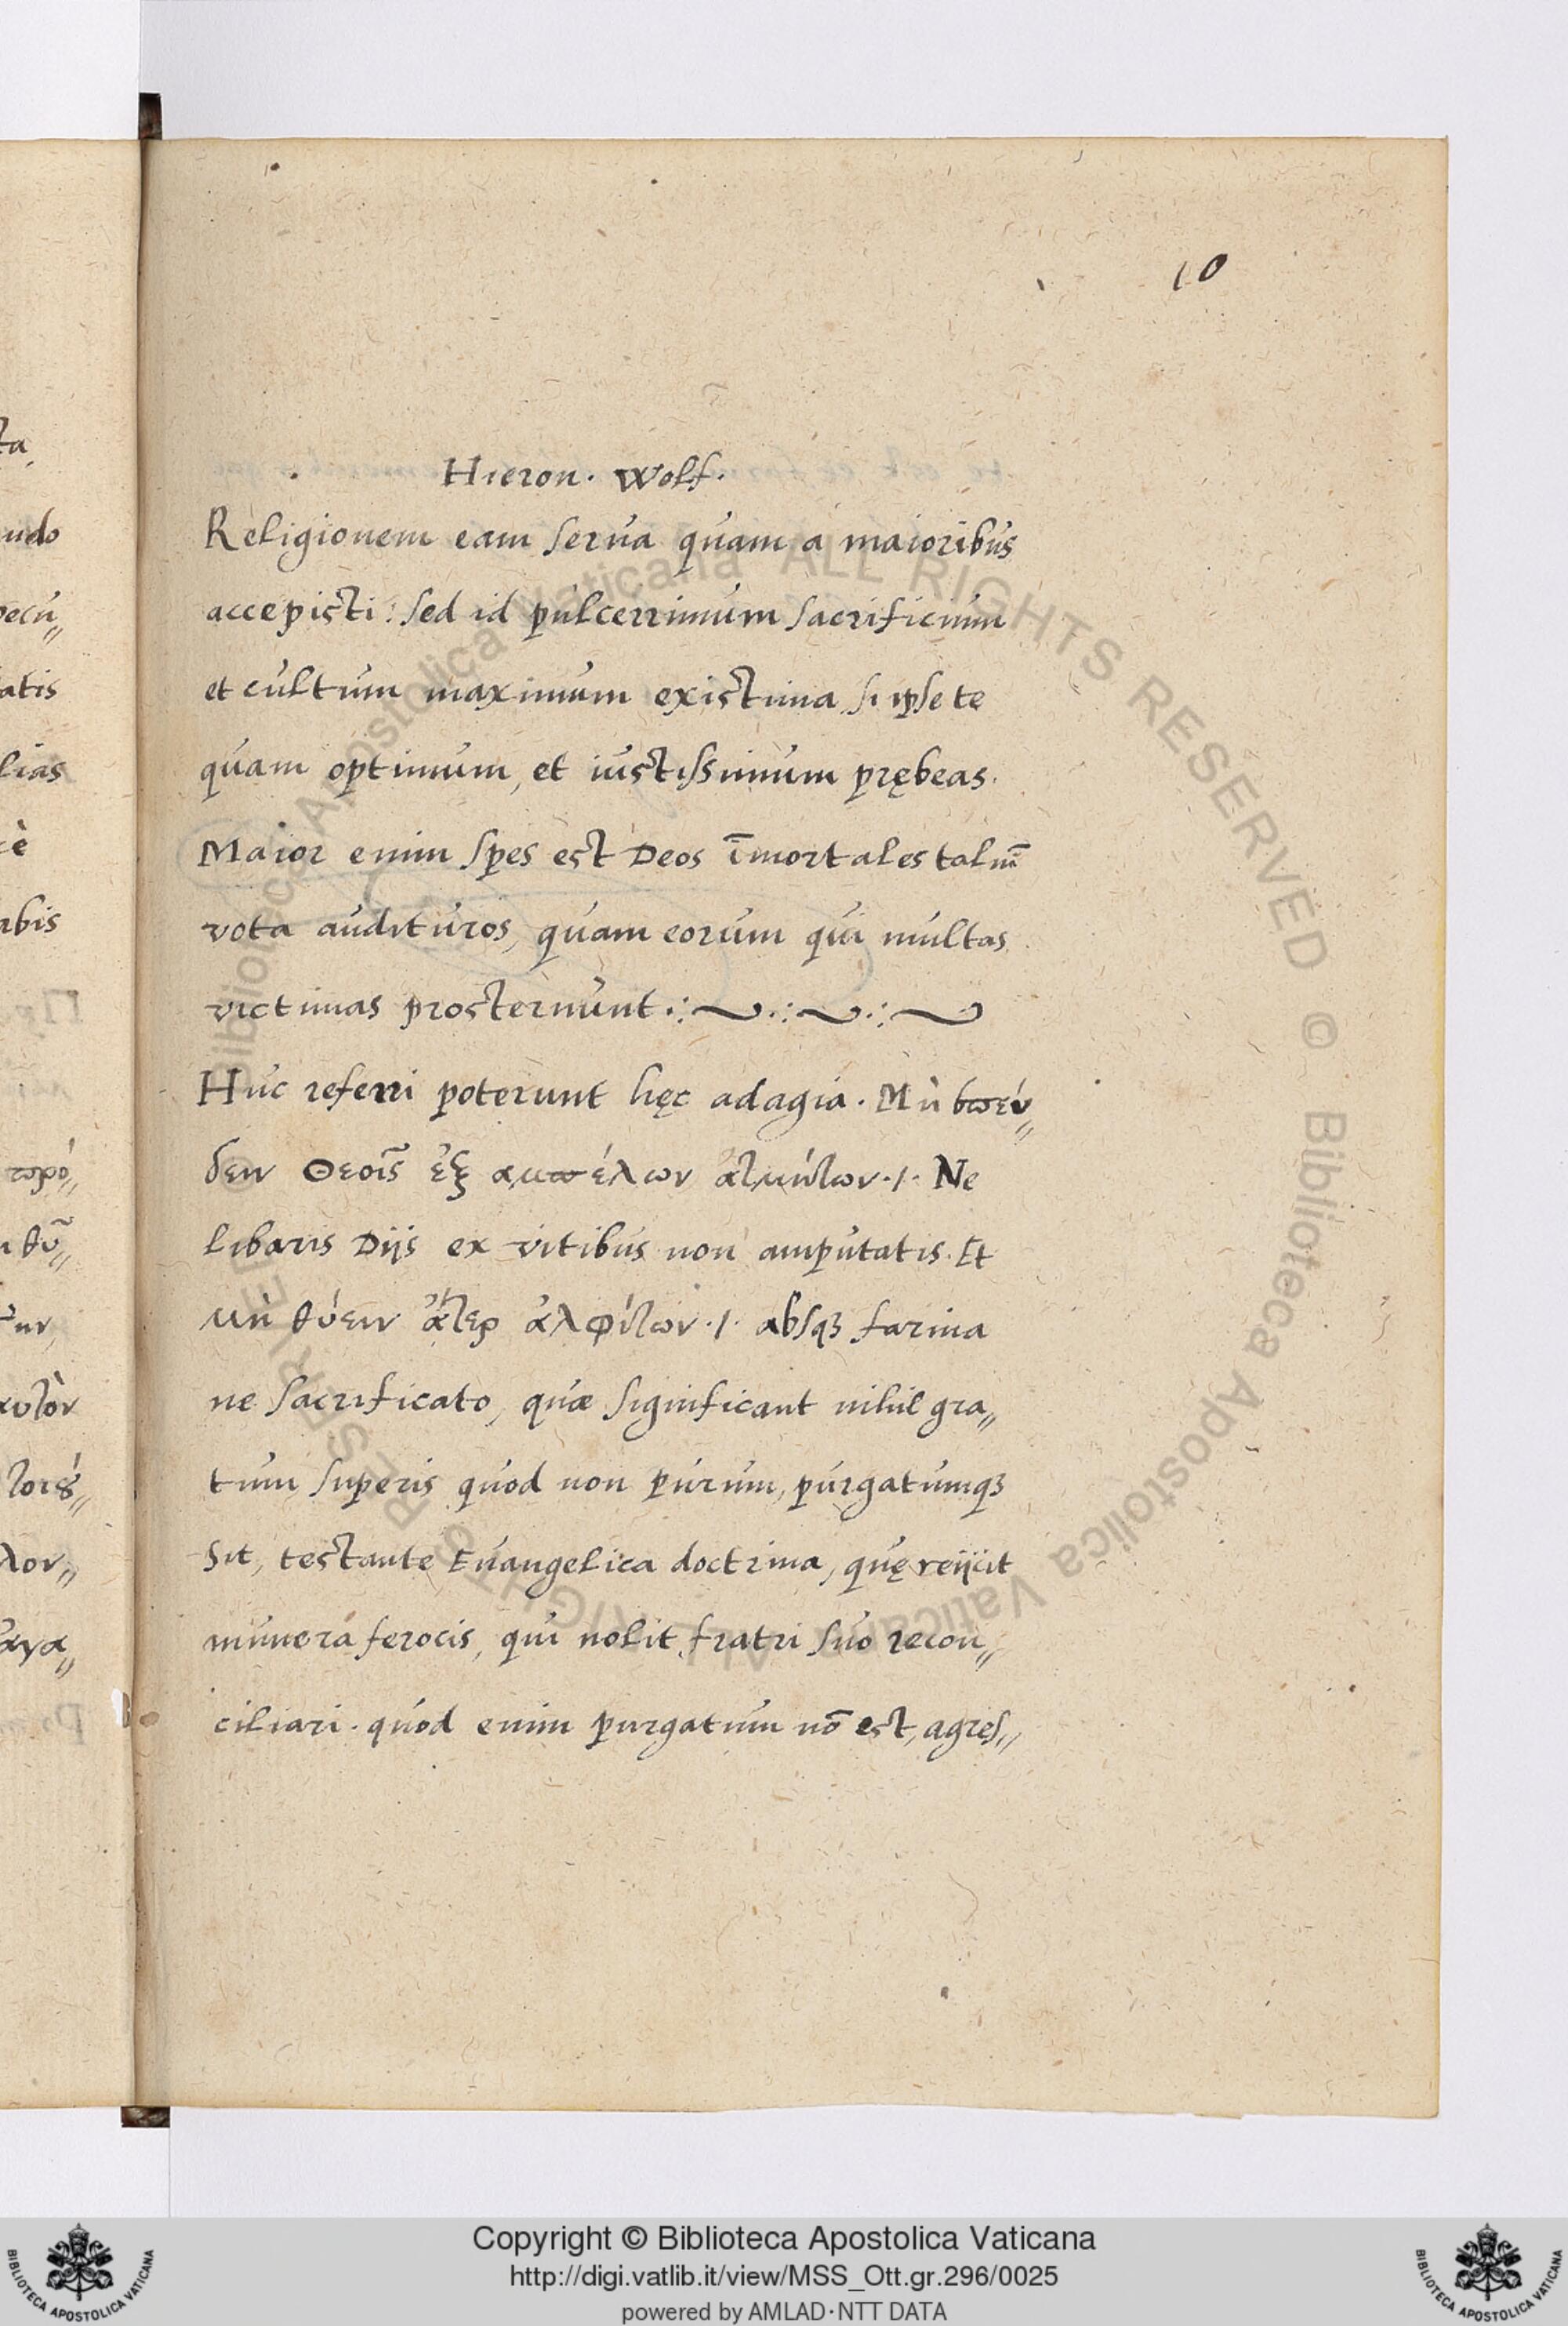 10
Hieron. Wolf.
Religionem eam serua quam a maioribus
accepisti: sed id pulcerrimum sacrificium
et cultum maximum existima si ipse te
quam optimum, et iustissimum prębeas.
Maior enim spes est Deos īmortales taliū
vota audituros, quam eorum qui multas
victimas prosternunt.
Huc referri poterunt hęc adagia. Μὴ σπέν〃
δειν Θεοῖς ἐξ αμπέλων ἀτμήτων ./. Ne
libaris Dijs ex vitibus non amputatis. Et
μὴ θύειν ἄτερ ἀλφίτων ./. absqȝ farina
ne sacrificato, quæ significant nihil gra〃
tum superis quod non purum, purgatumqȝ
sit, testante Euangelica doctrina, quę reijcit
munera ferocis, qui nolit fratri suo recon〃
ciliari. quod enim purgatum nō est, agres〃
ta
udo
pecu〃
tatis
lias
cè
rbis
πρό〃
υτὸν
λον〃
ἀγα〃
Biblioteca Apostolica Vaticana ALL RIGHTS RESERVED © Biblioteca Apostolica Vaticana ALL RIGHTS RESERVED ©
Copyright © Biblioteca Apostolica Vaticana
http://digi.vatlib.it/view/MSS_Ott.gr.296/0025
powered by AMLAD·NTT DATA
BIBLIOTECA APOSTOLICA VATICANA
BIBLIOTECA APOSTOLICA VATICANA